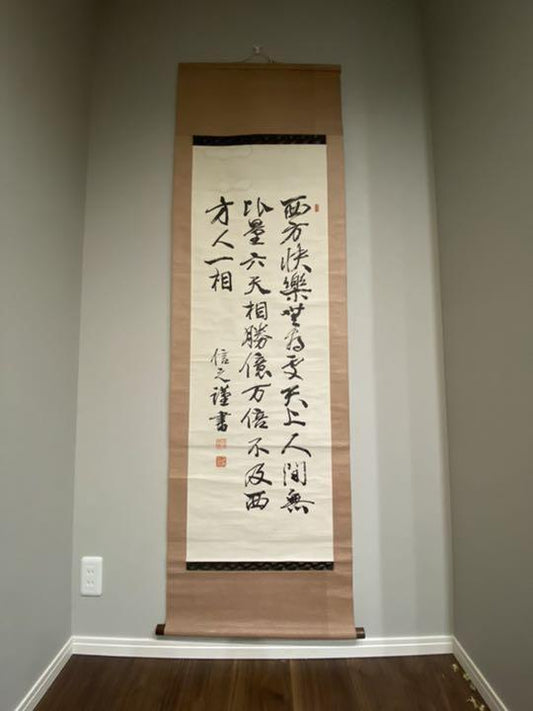 西方快樂無為處天上人間無
比量六天相勝億万倍不及西
方人一相
信之謹書